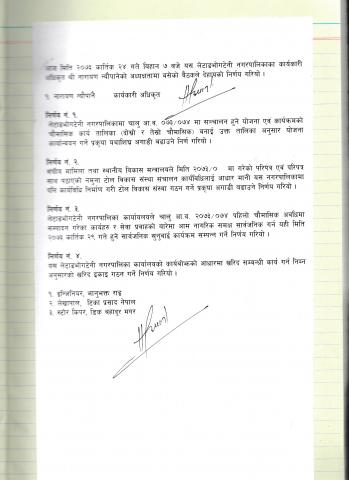 आज मिति २०७३ कार्तिक २४ गते बिहान ७ बजे यस लेटाङभोगटेनी नगरपालिकाका कार्यकारी
अधिकृत श्री नारायण न्यौपानेको अध्यक्षतामा बसेको बैठकले देहायको निर्णय गरियो ।
१. नारायण न्यौपाने कार्यकारी अधिकृत
निर्णय नं. १.
लेटाङभोगटेनी नगरपालिकामा चालु आ.व. ०७३/०७४ मा सञ्चालन हुने योजना एवं कार्यक्रमको
चौमासिक कार्य तालिका (दोश्रो र तेस्रो चौमासिक) बनाई उक्त तालिका अनुसार योजना
कार्यान्वयन गर्ने प्रकृया यथाशिघ्र अगाडी बढाउने निर्ण गरियो ।
निर्णय नं. २.
संघीय मामिला तथा स्थानीय विकास मन्त्रालयले मिति २०७३/० मा गरेको परिपत्र एवं परिपत्र
साथ पठाएको नमुना टोल विकास संस्था संचालन कार्यविधिलाई आधार मानी यस नगरपालिकामा
पनि कार्यविधि निर्माण गरी टोल विकास संस्था गठन गर्ने प्रकृया अगाडी बढाउने निर्ण गरियो ।
निर्णय नं. ३.
लेटाङभोगटेनी नगरपालिका कार्यालयले चालु आ.व. २०७३/०७४ पहिलो चौमासिक अवधिमा
सम्पादन गरेका कार्यहरु र सेवा प्रवाहको बारेमा आम नागरिक समक्ष सार्वजनिक गर्न यही मिति
२०७३ कार्तिक २९ गते हुने सार्वजनिक सुनुवाई कार्यक्रम सम्पन्न गर्ने निर्णय गरियो ।
निर्णय नं. ४.
यस लेटाङभोगटेनी नगरपालिका कार्यालयको कार्यबोझको आधारमा खरिद सम्बन्धी कार्य गर्न निम्न
अनुसारको खरिद इकाइ गठन गर्ने निर्णय गरियो ।
१. इन्जिनियर, भानुभक्त राई
२. लेखापाल, टिका प्रसाद नेपाल
३. स्टोर किपर, डिक बहादुर मगर